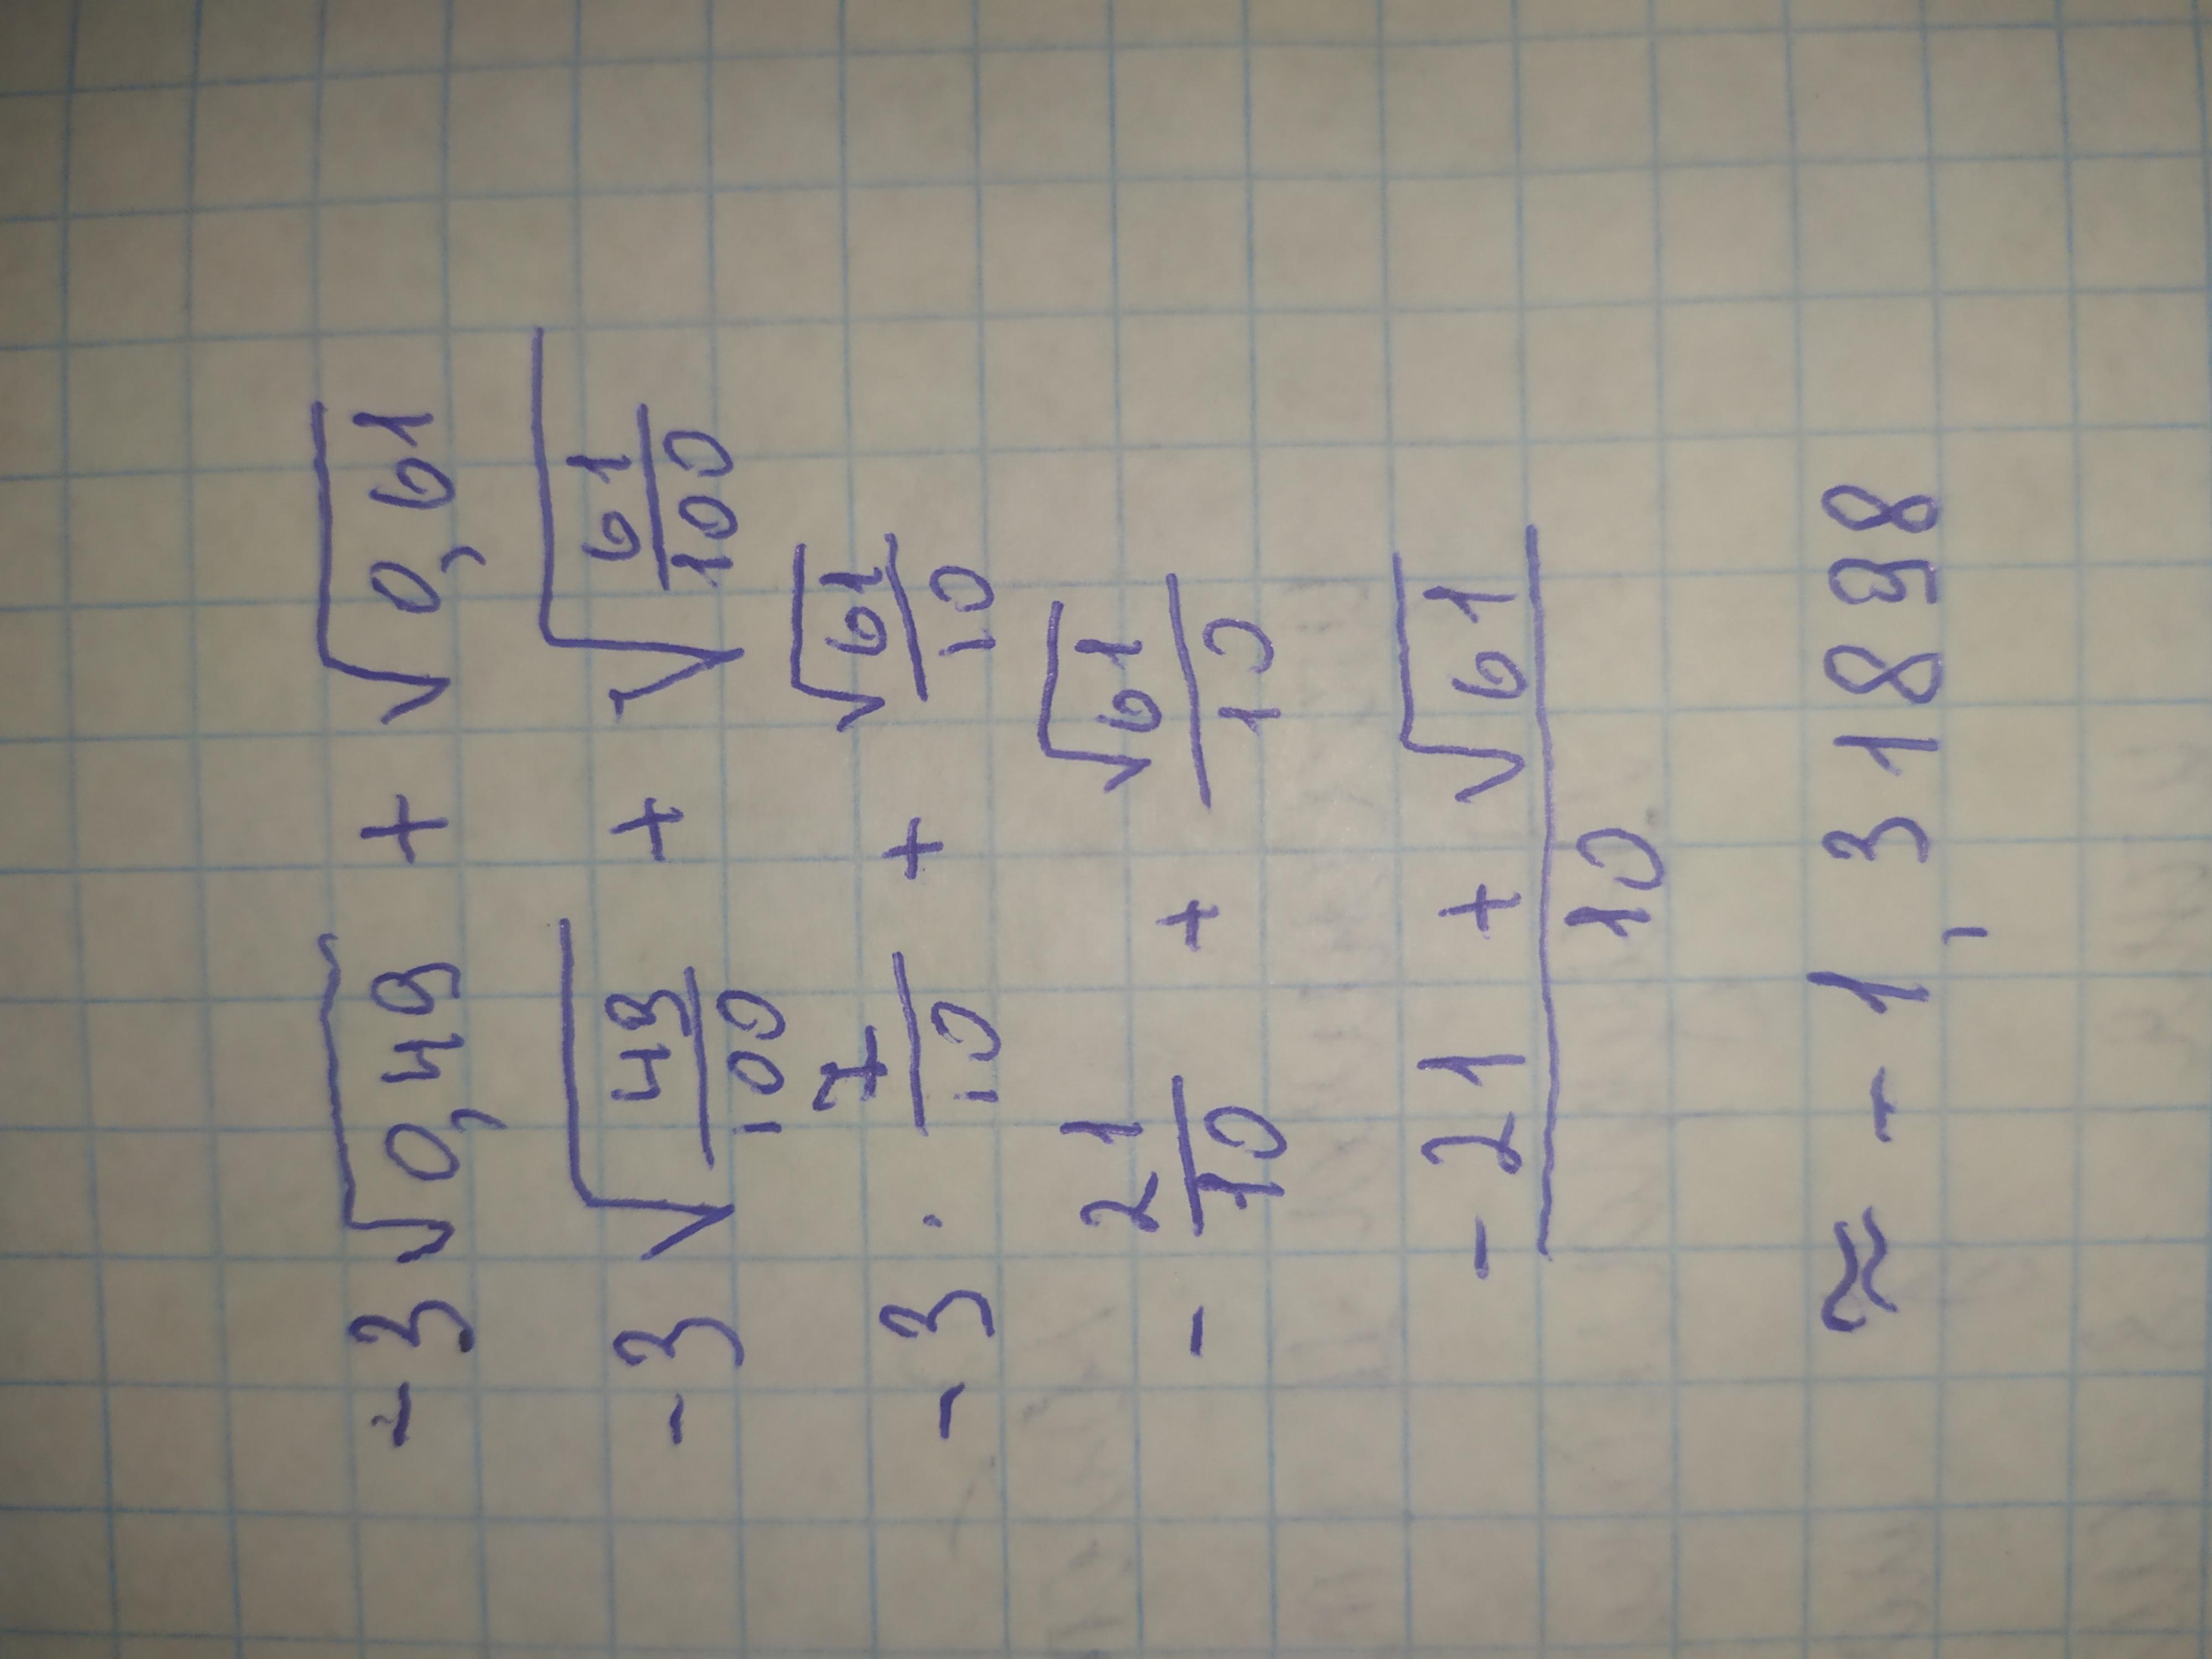 -3√0,49 + √0,61
-3√(49/100) + √(61/100)
-3 · 7/10 + √61/10
- 21/10 + √61/10
(-21 + √61)/10
≈ -1,31898